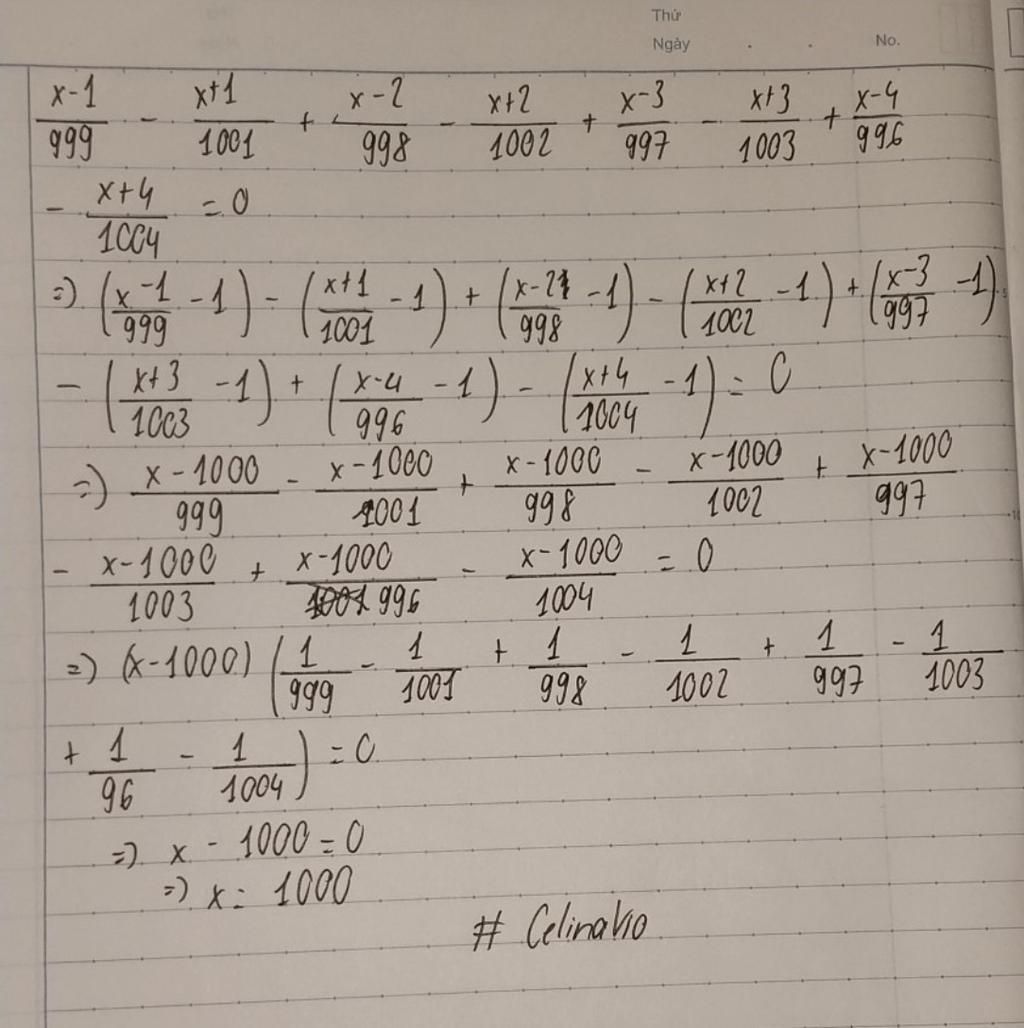 Thứ
Ngày . . No.
\frac{x-1}{999} - \frac{x+1}{1001} + \frac{x-2}{998} - \frac{x+2}{1002} + \frac{x-3}{997} - \frac{x+3}{1003} + \frac{x-4}{996}
- \frac{x+4}{1004} = 0
=) (\frac{x-1}{999} - 1) - (\frac{x+1}{1001} - 1) + (\frac{x-2}{998} - 1) - (\frac{x+2}{1002} - 1) + (\frac{x-3}{997} - 1)
- (\frac{x+3}{1003} - 1) + (\frac{x-4}{996} - 1) - (\frac{x+4}{1004} - 1) = 0
=) \frac{x-1000}{999} - \frac{x-1000}{1001} + \frac{x-1000}{998} - \frac{x-1000}{1002} + \frac{x-1000}{997}
- \frac{x-1000}{1003} + \frac{x-1000}{996} - \frac{x-1000}{1004} = 0
=) (x-1000) (\frac{1}{999} - \frac{1}{1001} + \frac{1}{998} - \frac{1}{1002} + \frac{1}{997} - \frac{1}{1003}
+ \frac{1}{96} - \frac{1}{1004}) = 0
=) x - 1000 = 0
=) x = 1000
#